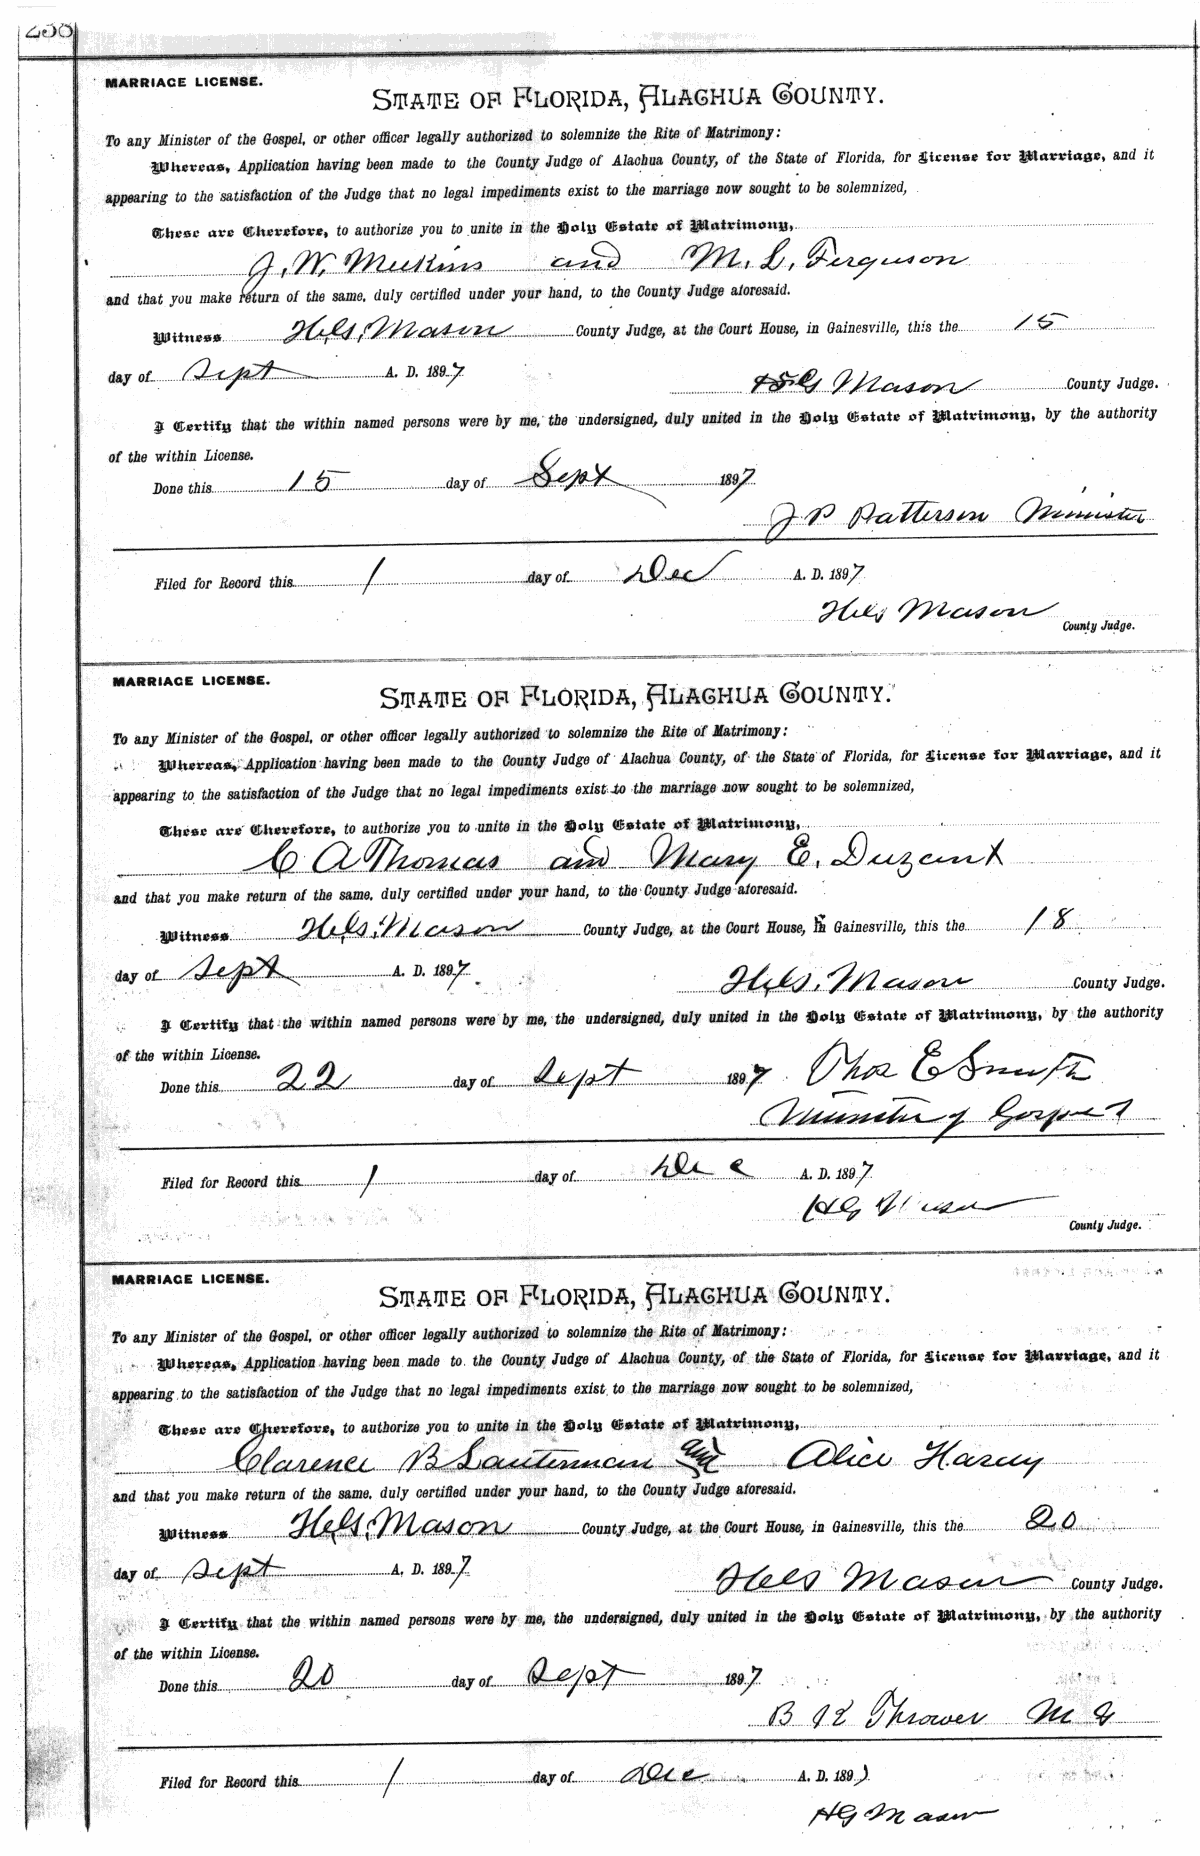 MARRIAGE LICENSE.
STATE OF FLORIDA, ALACHUA COUNTY.
To any Minister of the Gospel, or other officer legally authorized to solemnize the Rite of Matrimony:
Whereas, Application having been made to the County Judge of Alachua County, of the State of Florida, for License for Marriage, and it
appearing to the satisfaction of the Judge that no legal impediments exist to the marriage now sought to be solemnized,
These are Therefore, to authorize you to unite in the Holy Estate of Matrimony,
J. W. Meekins and M. L. Ferguson
and that you make return of the same, duly certified under your hand, to the County Judge aforesaid.
Witness H. G. Mason County Judge, at the Court House, in Gainesville, this the 15
day of Sept A. D. 1897
H G Mason County Judge.
I Certify that the within named persons were by me, the undersigned, duly united in the Holy Estate of Matrimony, by the authority
of the within License.
Done this 15 day of Sept 1897
J P Patterson Minister
Filed for Record this 1 day of Dec A. D. 1897
H G Mason
County Judge.
MARRIAGE LICENSE.
STATE OF FLORIDA, ALACHUA COUNTY.
To any Minister of the Gospel, or other officer legally authorized to solemnize the Rite of Matrimony:
Whereas, Application having been made to the County Judge of Alachua County, of the State of Florida, for License for Marriage, and it
appearing to the satisfaction of the Judge that no legal impediments exist to the marriage now sought to be solemnized,
These are Therefore, to authorize you to unite in the Holy Estate of Matrimony,
C A Thomas and Mary E. Duzant
and that you make return of the same, duly certified under your hand, to the County Judge aforesaid.
Witness H. G. Mason County Judge, at the Court House, in Gainesville, this the 18
day of Sept A. D. 1897
H. G. Mason County Judge.
I Certify that the within named persons were by me, the undersigned, duly united in the Holy Estate of Matrimony, by the authority
of the within License.
Done this 22 day of Sept 1897 Thos E Smith
Minister of Gospel
Filed for Record this 1 day of Dec A. D. 1897
H G Mason
County Judge.
MARRIAGE LICENSE.
STATE OF FLORIDA, ALACHUA COUNTY.
To any Minister of the Gospel, or other officer legally authorized to solemnize the Rite of Matrimony:
Whereas, Application having been made to the County Judge of Alachua County, of the State of Florida, for License for Marriage, and it
appearing to the satisfaction of the Judge that no legal impediments exist to the marriage now sought to be solemnized,
These are Therefore, to authorize you to unite in the Holy Estate of Matrimony,
Clarence B Lauterman and Alice Harvey
and that you make return of the same, duly certified under your hand, to the County Judge aforesaid.
Witness H. G. Mason County Judge, at the Court House, in Gainesville, this the 20
day of Sept A. D. 1897
H G Mason County Judge.
I Certify that the within named persons were by me, the undersigned, duly united in the Holy Estate of Matrimony, by the authority
of the within License.
Done this 20 day of Sept 1897
B K Thrower M G
Filed for Record this 1 day of Dec A. D. 1897
H G Mason